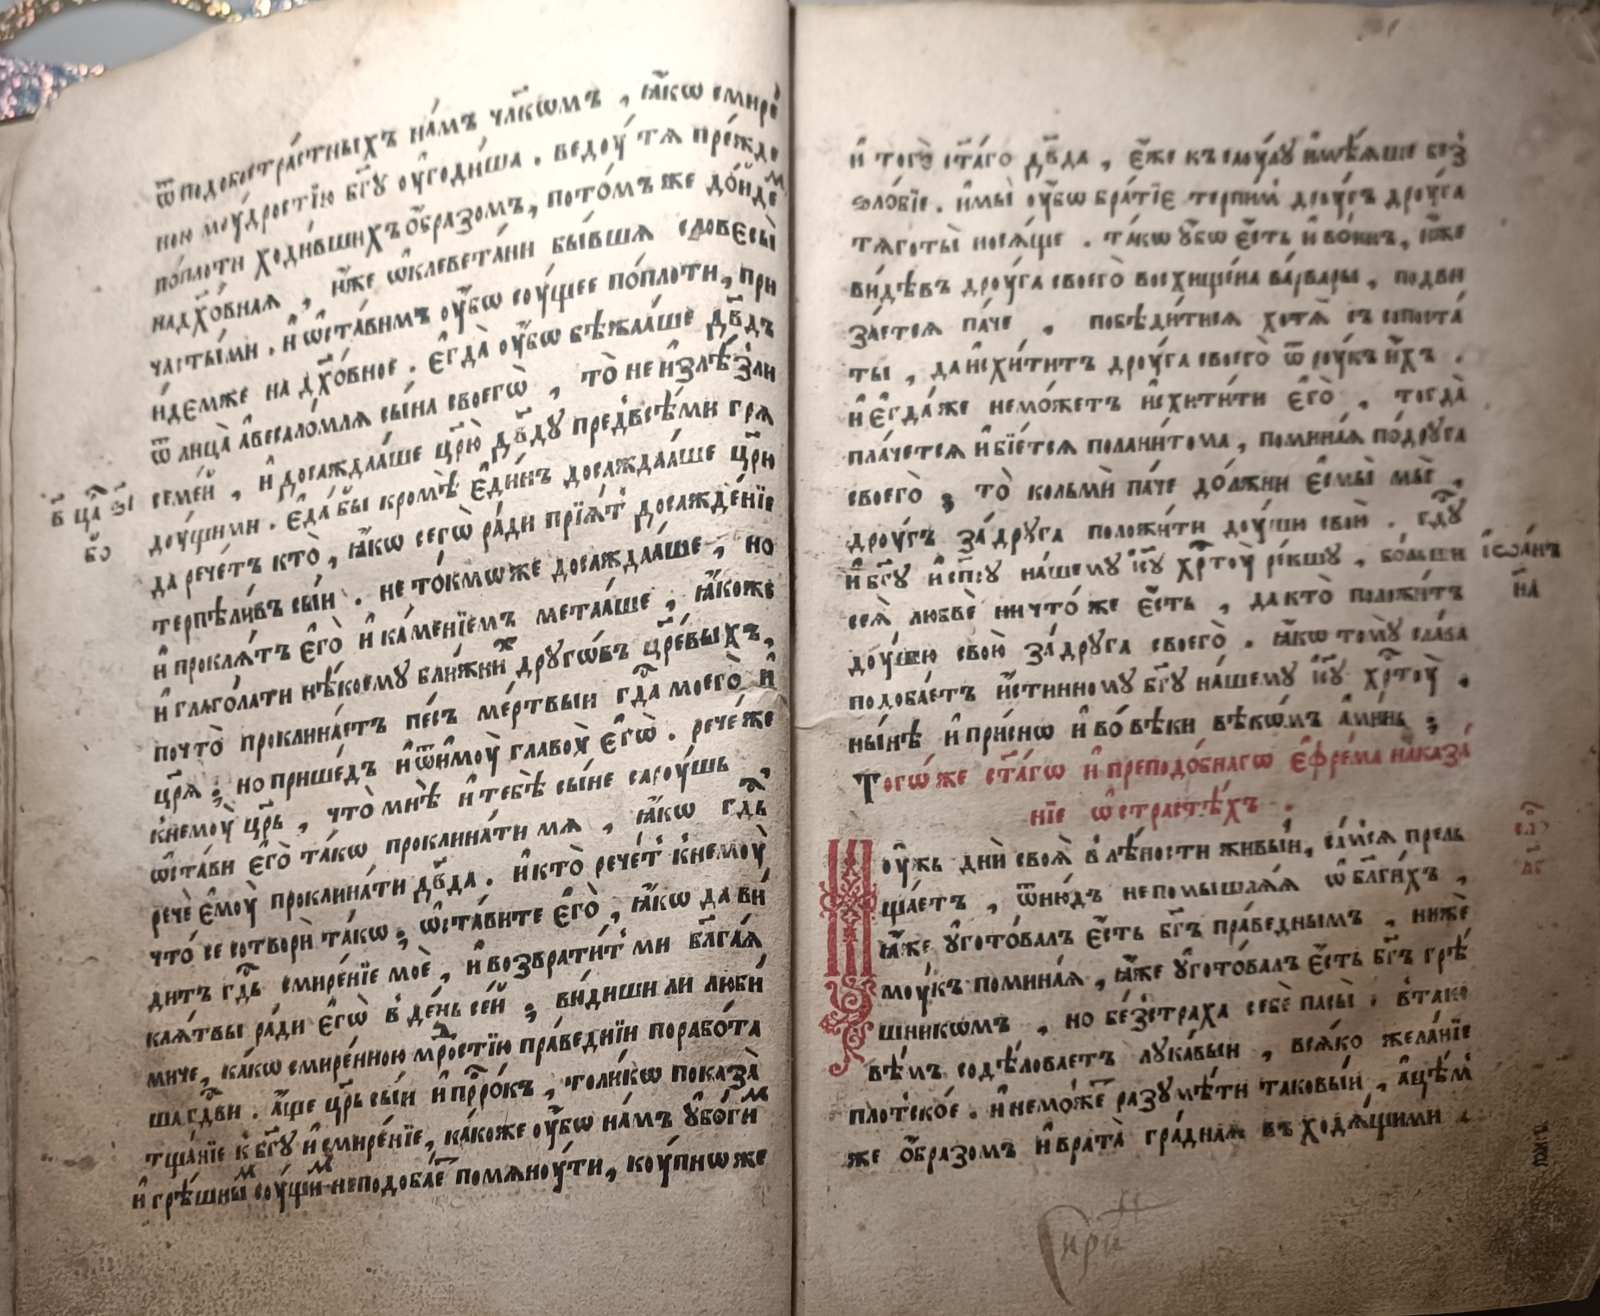 ѿ подобострастныхъ на́мъ чл҃кѡмъ , ꙗ҆́кѡ смире́
ною моу́дростїю бг҃у оу҆годи́ша . ведоу́тѧ пре́жде
по́плоти ходи́вшихъ о҆́бразомъ , пото́мъ же до́йдемъ
на дх҃о́внаѧ , и҆́же ѡ҆клевета́ни бы́вшѧ словесы̀
ча́стыми . и҆ ѡ҆ста́вимъ оу҆́бѡ соу́щее по́плоти , прі
и́демже на дх҃о́вное . є҆гда̀ оу҆́бѡ бѣжа́аше дв҃дъ
ѿ лица̀ а҆весало́млѧ сы́на своегѡ̀ , то̀ не и҆злѣ́зли
семе́й , и҆ досажда́аше цр҃ю̀ дв҃ду пред̾всѣ́ми грѧ
доу́щими . є҆да́ бы кромѣ̀ є҆ди́нъ досажда́аше цр҃ю
да рече́тъ кто̀ , ꙗ҆́кѡ сегѡ̀ ра́ди прїѧ́т̾ досажде́нїе
терпѣли́въ сы́и . не то́кмѡ же досажда́аше , но
и҆ проклѧ́тъ є҆го̀ и҆ ка́менїемъ мета́аше , ꙗ҆́коже
и҆ глаго́лати нѣ́коему бли́жнихъ другѡ́въ цр҃е́выхъ ,
почто̀ проклина́етъ пе́съ ме́ртвыи гд҃а моего̀ и҆
цр҃ѧ̀ ; но прише́дъ и҆ ѿи҆моу̀ главоу̀ є҆гѡ̀ . рече́же
к̾немоу̀ цр҃ь , что̀ мнѣ̀ и҆ тебѣ̀ сы́не сароу́шь ,
ѡ҆ста́ви є҆го̀ та́кѡ проклина́ти мѧ , ꙗ҆́кѡ гд҃ь
речѐ є҆моу̀ проклина́ти дв҃да . и҆ кто̀ рече́т̾ к̾немоу̀
что́ се сотвори̾ та́кѡ ; ѡ҆ста́вите є҆го̀ , ꙗ҆́кѡ да ви́
дитъ гд҃ь смире́нїе моѐ , и҆ возврати́т̾ ми бл҃га́ѧ
клѧ́твы ра́ди є҆гѡ̀ в̾ де́нь се́й ; ви́диши ли люби́
миче , ка́кѡ смире́нною мр҃остїю пра́веднїи порабо́та
ша гд҃ви . а҆́ще цр҃ь сы́и и҆ прр҃о́къ , толи́кѡ показа̀
тща́нїе к̾ бг҃у и҆ смире́нїе , ка́коже оу҆́бѡ на́мъ оу҆бо́гимъ
и҆ грѣ́шнымъ соу́щимъ неподоба́етъ помѧноу́ти , коу́пнѡ же
в҃ цр҃ѧ ѕ҃і
б҃о
и҆ того̀ ст҃а́го дв҃да , є҆́же къ саоу́лу и҆мѣ́ѧше без̾
ѕло́бїе . и҆ мы̀ оу҆́бѡ бра́тїе терпи́м̾ дроу́гъ дроу́га
тѧготы̀ носѧ́ще . та́кѡ оу҆́бѡ є҆́сть и҆ во́инъ , и҆́же
ви́дѣвъ дроу́га своего̀ восхище́на ва́рвары , подви
за́етсѧ па́че . побѣди́тисѧ хотѧ̀ съ сопоста́
ты , да и҆схи́титъ дроу́га своего̀ ѿ роу́къ и҆́хъ .
и҆ є҆гда́же немо́жетъ и҆схити́ти є҆го̀ , тогда̀
пла́четсѧ и҆ бїе́тсѧ полани́тома , помина́ѧ по́друга
своего̀ ; то̀ кольмѝ па́че до́лжни є҆смы̀ мы̀ ,
дроу́гъ за́друга положи́ти доу́ши своѝ . гд҃у
и҆ бг҃у и҆ сп҃су на́шему і҆с҃у хрⷭ҇тоу̀ ре́кшу , бо́льши
сеѧ̀ любвѐ ничто́же є҆́сть , да кто̀ положи́тъ
доу́шю свою̀ за́друга своего̀ . ꙗ҆́кѡ тому̀ сла́ва
подоба́етъ и҆́стинному бг҃у на́шему і҆с҃у хрⷭ҇тоу̀ ,
ны́нѣ и҆ при́снѡ и҆ во́ вѣки вѣкѡ́мъ а҆ми́нь ;
і҆ѡа́нъ
н҃а
Тогѡ́же ст҃а́гѡ и҆ преподо́бнагѡ є҆фре́ма наказа́
нїе ѡ҆ страсте́хъ .
Моу́жь днѝ своѧ̀ в̾ лѣ́ности живы́и , са́мсѧ прель
ща́етъ , ѿню́дъ не помышлѧ́ѧ ѡ҆ бл҃ги́хъ ,
ꙗ҆́же оу҆гото́валъ є҆́сть бг҃ъ пра́веднымъ , нижѐ
моу́къ помина́ѧ , ꙗ҆́же оу҆гото́валъ є҆́сть бг҃ъ грѣ́
шникѡмъ , но без̾стра́ха себѐ пасы̀ . в̾ тако
вѣ́мъ содѣ́ловаетъ лука́выи , всѧ́ко жела́нїе
пло́тское . и҆ немо́жетъ разумѣ́ти таковы́и , а҆́цѣм̾
же о҆́бразомъ и҆ врата̀ гра́днаѧ въ ходѧ́щими
сло́
л҃г